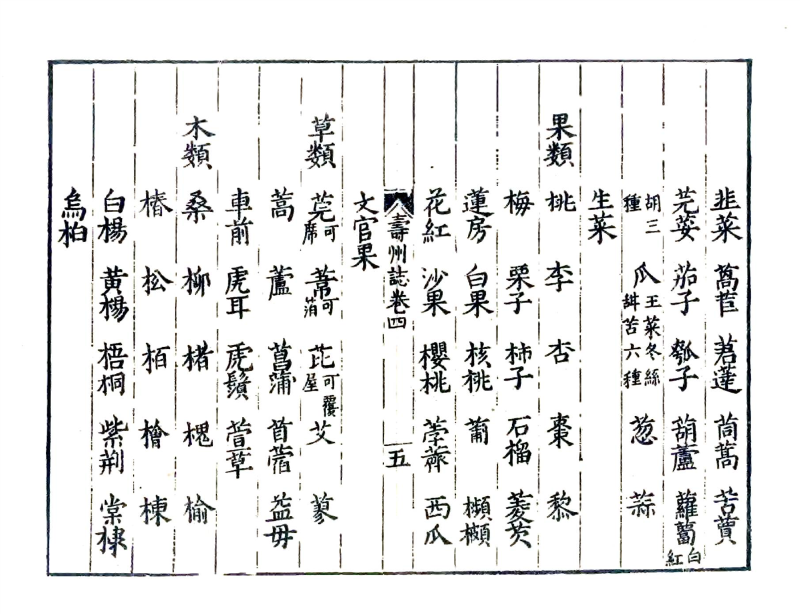 韭菜 萵苣 莙薘 茼蒿 苦蕒
芫荽 茄子 瓠子 葫蘆 蘿蔔白紅
胡三種 瓜王菜冬絲甜苦六種 葱 蒜
生菜
果類 桃 李 杏 棗 黎
梅 栗子 柿子 石榴 菱芡
蓮房 白果 核桃 蔔 櫇櫇
花紅 沙果 櫻桃 荸薺 西瓜
壽州誌卷四 五
文官果
草類 莞可席 葦可箔 芘可覆屋 艾 蓼
蒿 蘆 菖蒲 苜蓿 益毋
車前 虎耳 虎鬚 菅草
木類 桑 柳 楮 槐 榆
椿 松 栢 檜 棟
白楊 黃楊 梧桐 紫荆 棠棣
烏桕